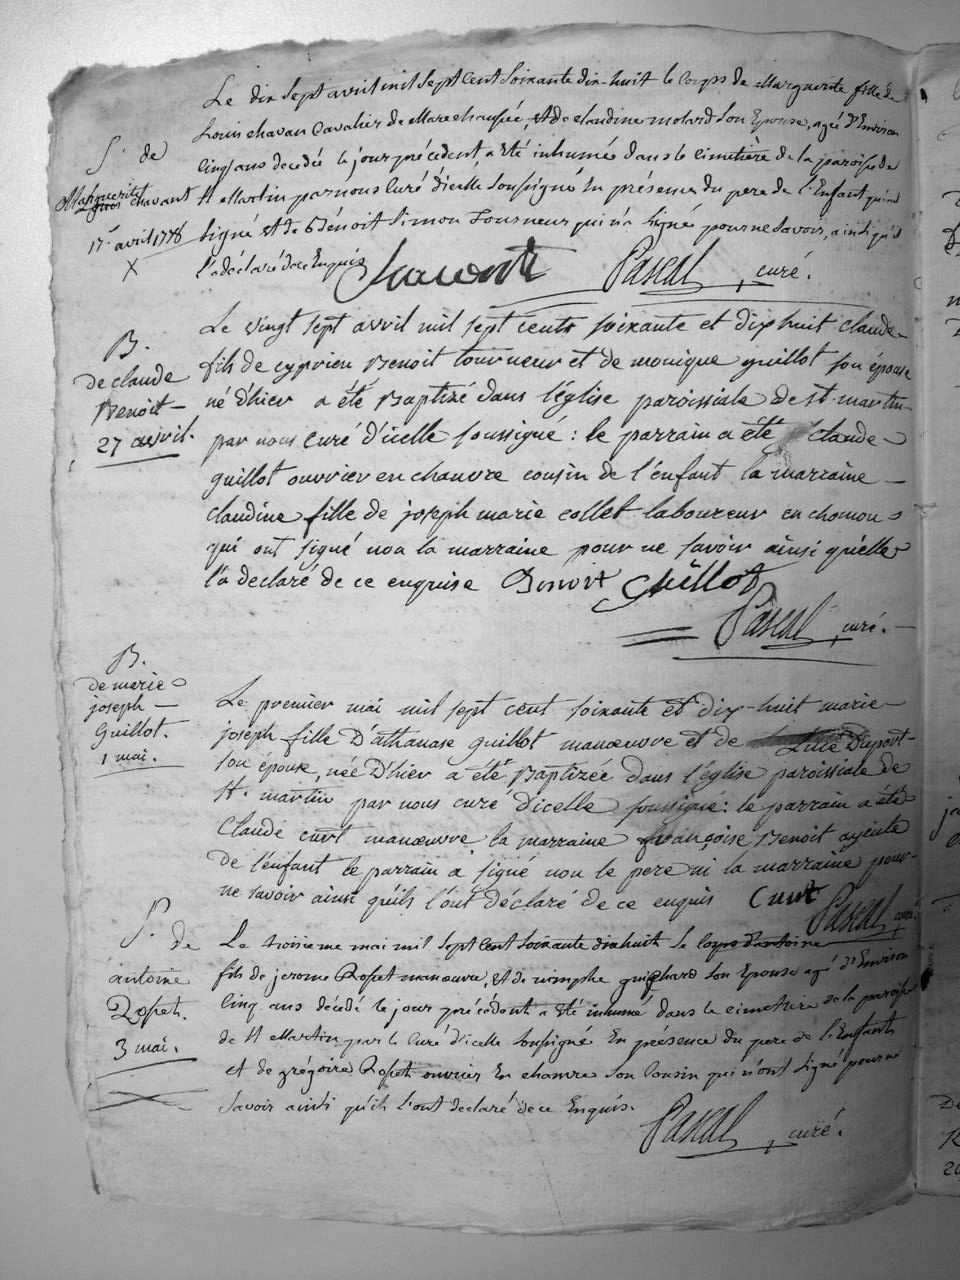 S. de
Marguerite
chavant
17e avril 1778
X
Le dix sept avril mil sept cent soixante dix-huit le corps de Marguerite fille de
Louis chavan Cavalier de Marechaussée, et de claudine molard son Epouse, agé d'Environ
cinq ans decedée le jour précedent, a été inhumée dans le cimetière de la paroisse de
St Martin par nous Curé d'icelle soussigné En présence du pere de l'Enfant qui a
signé et de Bénoit Simon Tourneur qui n'a signé pour ne savoir, ainsi qu'il
l'a déclaré de ce Enquis
Pascal, curé.
B.
de claude
Benoit
27 avril.
Le vingt sept avril mil sept cents soixante et dix huit claude
fils de cyprien Benoit tourneur et de monique guillot son épouse
né d'hier a été Baptizé dans l'église paroissiale de St. martin
par nous curé d'icelle soussigné : le parrain a été claude
guillot ouvrier en chanvre cousin de l'enfant la marraine
claudine fille de joseph marie collet laboureur en chomon
qui ont signé non la marraine pour ne savoir ainsi qu'elle
l'a declaré de ce enquise Benoit Guillot
Pascal, curé.
B.
de marie
joseph
Guillot.
1 mai.
Le premier mai mil sept cent soixante et dix-huit marie
joseph fille D'athanase guillot manœuvre et de Lucie Duport
son épouse, née D'hier a été Baptizée dans l'église paroissiale de
St. martin par nous curé D'icelle soussigné : le parrain a été
Claude curt manœuvre la marraine françoise Benoit ayeule
de l'enfant le parrain a signé non le pere ni la marraine pour
ne savoir ainsi qu'ils l'ont déclaré de ce enquis Curt
Pascal, curé.
S. de
antoine
Rosset.
3 mai.
Le troisieme mai mil sept cent soixante dix huit le corps d'antoine
fils de jerome Rosset manœuvre, et de nimphe guichard son Epouse agé d'Environ
cinq ans décédé le jour précédent a été inhumé dans le cimetiere de la paroisse
de St Martin par le Curé d'icelle soussigné En présence du pere de l'Enfant
et de grégoire Rosset ouvrier En chanvre son Cousin qui n'ont signé pour ne
savoir ainsi qu'ils l'ont declaré de ce Enquis.
Pascal, curé.